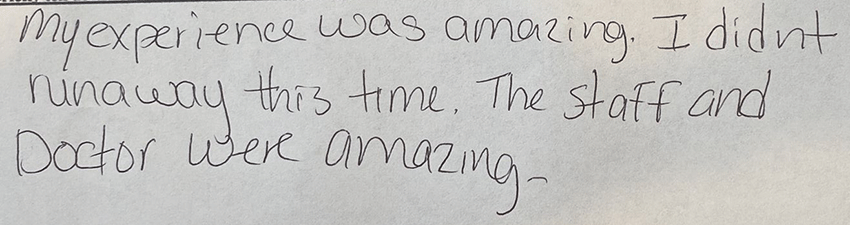 My experience was amazing. I didnt
runaway this time. The staff and
Doctor were amazing-